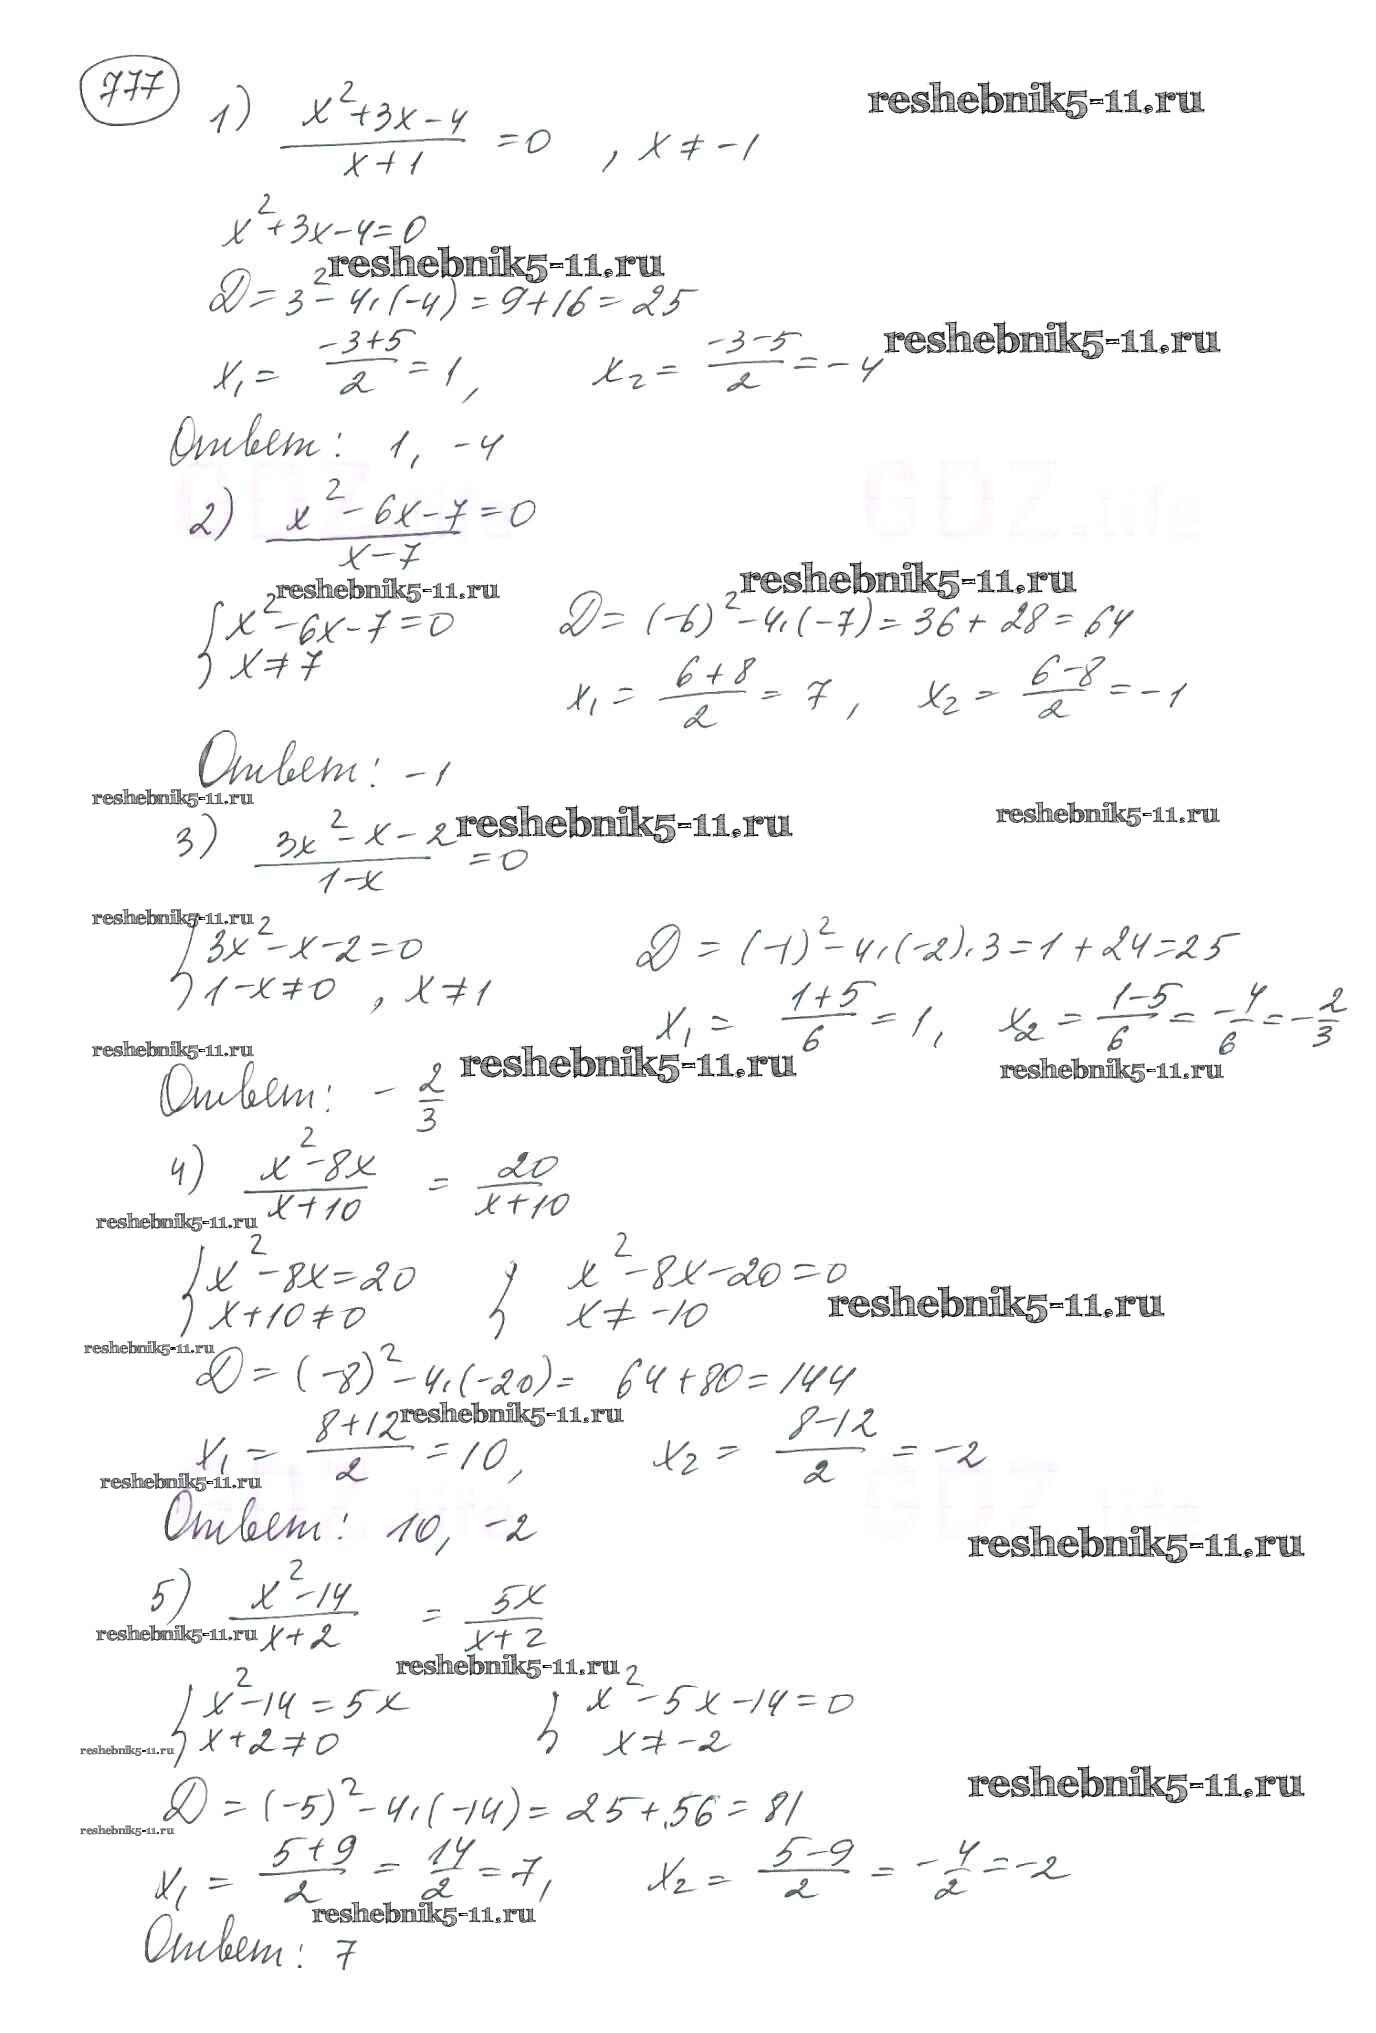 777
reshebnik5-11.ru
1) (x²+3x-4)/(x+1) =0 , x≠-1
x²+3x-4=0
reshebnik5-11.ru
D=3²-4·(-4)=9+16=25
reshebnik5-11.ru
x₁= (-3+5)/2 =1, x₂= (-3-5)/2 =-4
Ответ: 1, -4
GDZ.life GDZ.life
2) (x²-6x-7)/(x-7) =0
reshebnik5-11.ru reshebnik5-11.ru
{ x²-6x-7=0 D=(-6)²-4·(-7)=36+28=64
x≠7
x₁= (6+8)/2 = 7, x₂= (6-8)/2 =-1
Ответ: -1
reshebnik5-11.ru
3) (3x²-x-2)/(1-x) =0 reshebnik5-11.ru reshebnik5-11.ru
reshebnik5-11.ru
{ 3x²-x-2=0 D=(-1)²-4·(-2)·3=1+24=25
1-x≠0, x≠1
x₁= (1+5)/6 =1, x₂= (1-5)/6 = -4/6 = -2/3
reshebnik5-11.ru reshebnik5-11.ru reshebnik5-11.ru
Ответ: -2/3
4) (x²-8x)/(x+10) = 20/(x+10)
reshebnik5-11.ru
{ x²-8x=20 { x²-8x-20=0
x+10≠0 x≠-10
reshebnik5-11.ru
reshebnik5-11.ru
D=(-8)²-4·(-20)= 64+80=144
reshebnik5-11.ru
x₁= (8+12)/2 =10, x₂= (8-12)/2 =-2
reshebnik5-11.ru
GDZ.life GDZ.life
Ответ: 10, -2
reshebnik5-11.ru
5) (x²-14)/(x+2) = 5x/(x+2)
reshebnik5-11.ru
reshebnik5-11.ru
{ x²-14=5x { x²-5x-14=0
x+2≠0 x≠-2
reshebnik5-11.ru
reshebnik5-11.ru
D=(-5)²-4·(-14)=25+56=81
reshebnik5-11.ru
x₁= (5+9)/2 = 14/2 =7, x₂= (5-9)/2 = -4/2 =-2
reshebnik5-11.ru
Ответ: 7